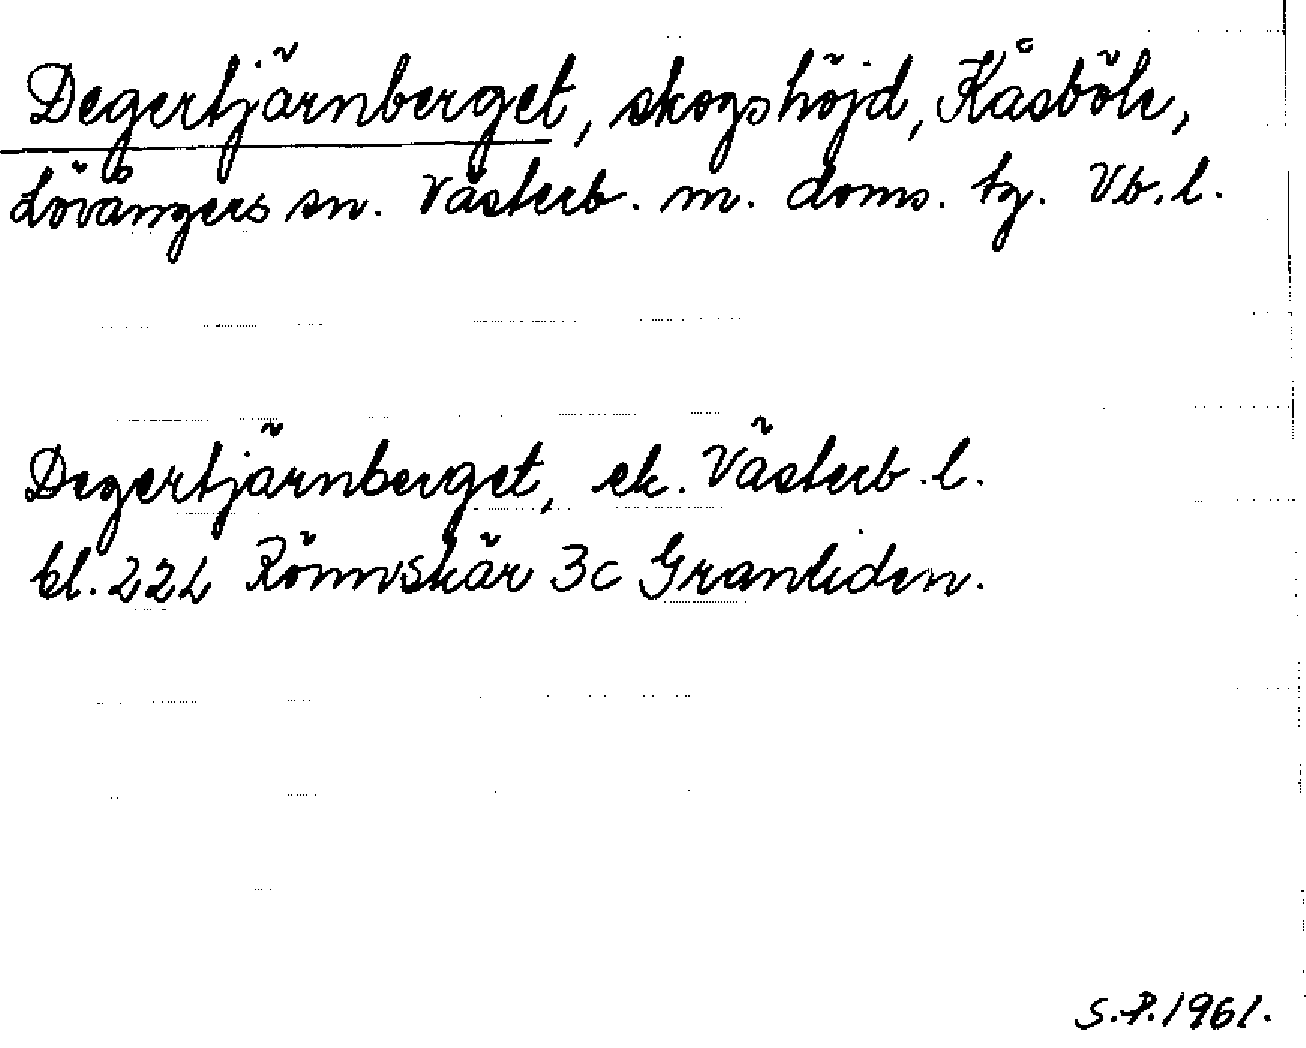 Degertjärnberget, skogshöjd, Kåsböle,
Lövångers sn. Västerb. m. doms. tg. Vb. l.
Degertjärnberget, ek. Västerb. l.
bl. 22L Rönnskär 3c Granliden.
S.P. 1961.